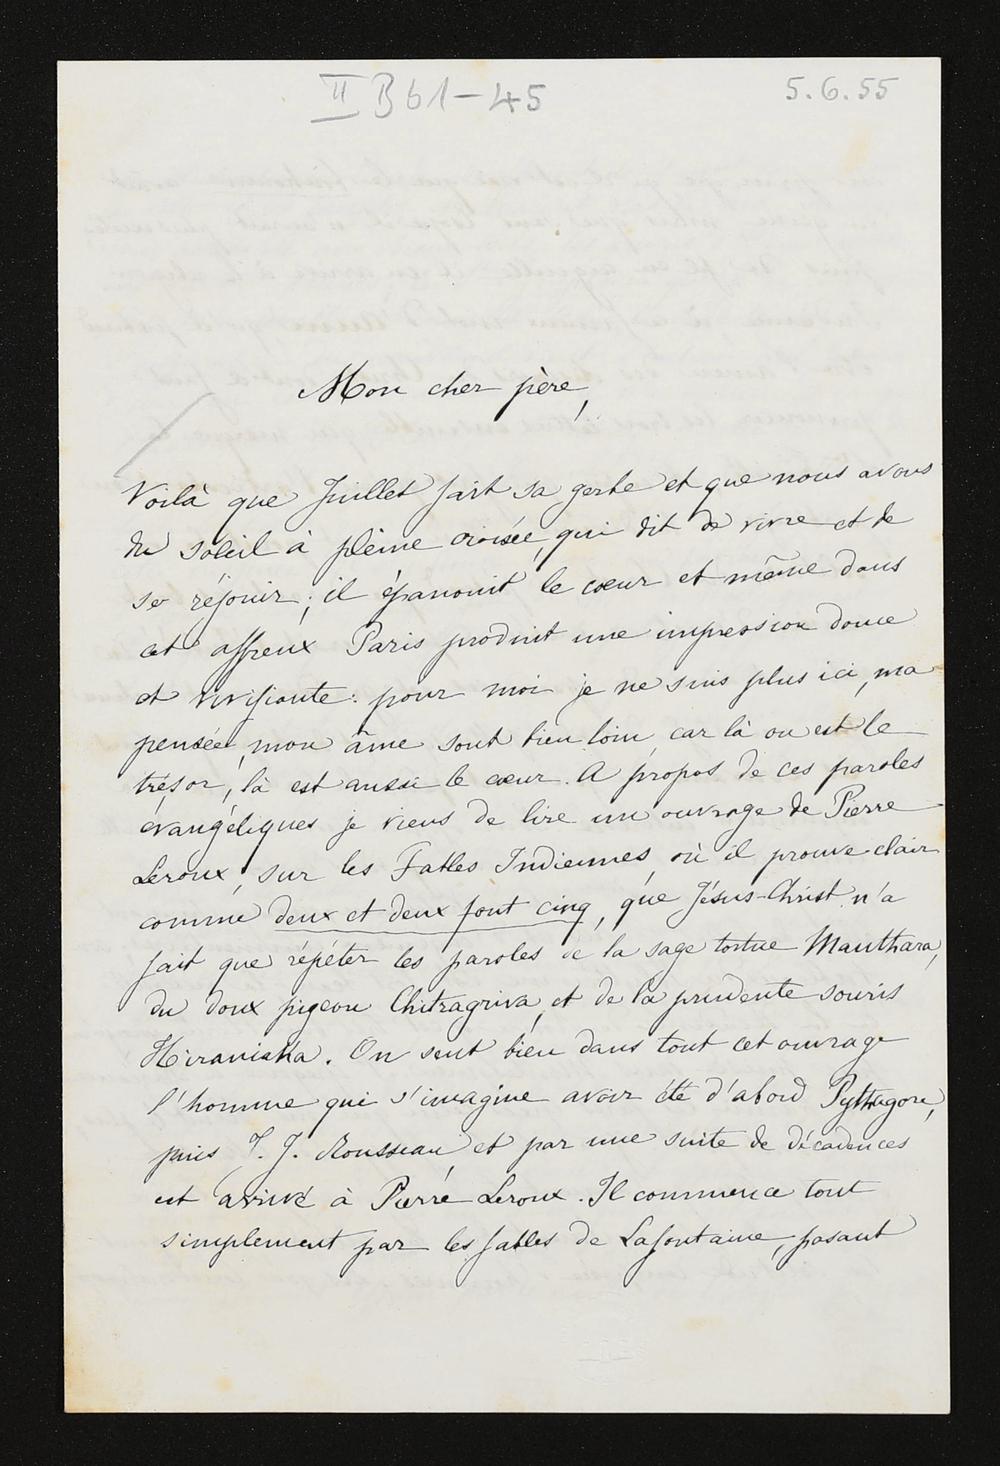 II B61-45
5.6.55
Mon cher père,
Voilà que Juillet fait sa gerbe et que nous avons
du soleil à pleine croisée, qui dit de vivre et de
se réjouir; il épanouit le cœur et même dans
cet affreux Paris produit une impression douce
et vivifiante: pour moi je ne suis plus ici, ma
pensée, mon âme sont bien loin, car là ou est le
trésor, là est aussi le cœur. A propos de ces paroles
évangéliques je viens de lire un ouvrage de Pierre
Leroux, sur les Fables Indiennes, où il prouve clair
comme deux et deux font cinq, que Jésus-Christ n'a
fait que répéter les paroles de la sage tortue Manthara,
du doux pigeon Chitragriva, et de la prudente souris
Hiraniaka. On sent bien dans tout cet ouvrage
l'homme qui s'imagine avoir été d'abord Pythagore,
puis J. J. Rousseau et par une suite de décadences
est arrivé à Pierre Leroux. Il commence tout
simplement par les fables de Lafontaine, posant